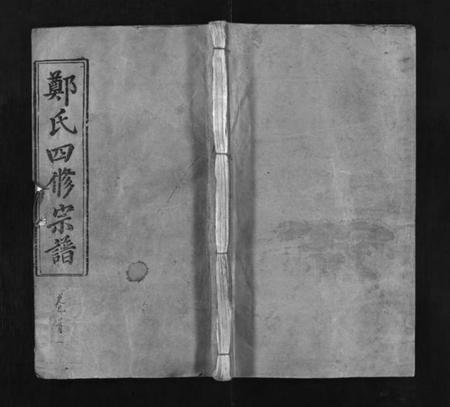 鄭氏四修宗譜
卷首一